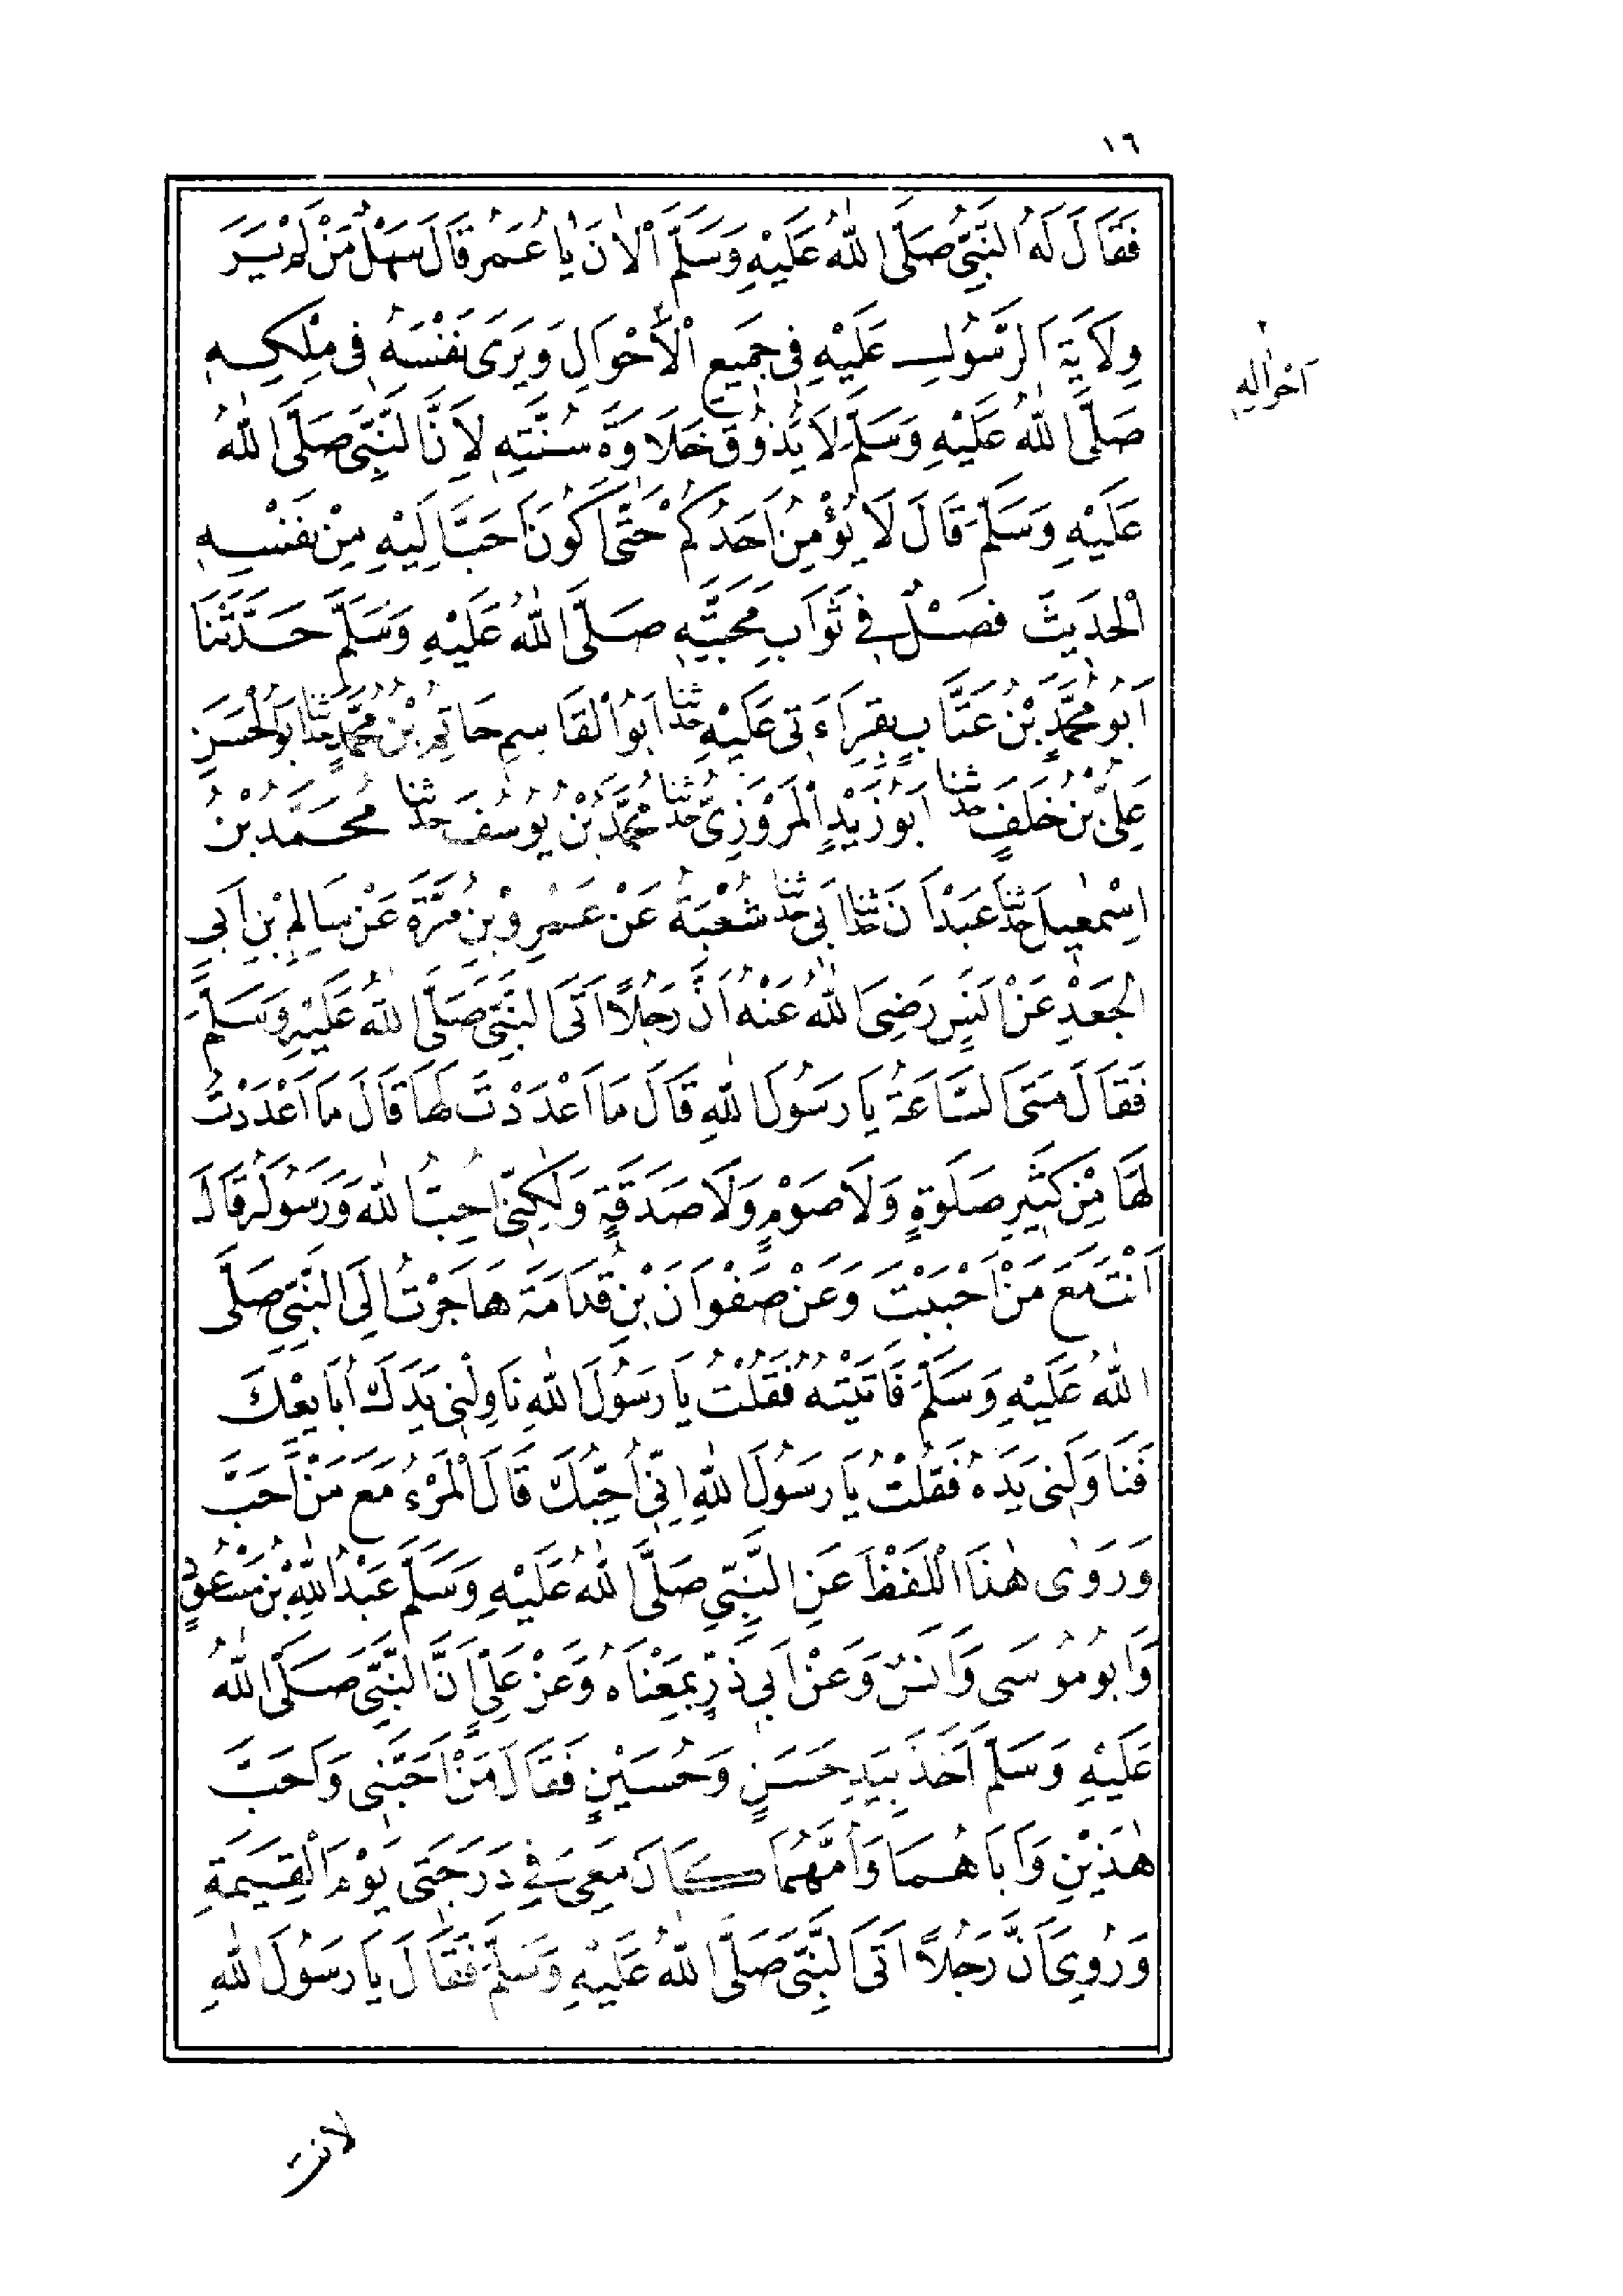 ١٦
فَقَالَ لَهُ النَّبِيُّ صَلَّى اللهُ عَلَيْهِ وَسَلَّمَ اَلْاٰنَ يَا عُمَرُ قَالَ سَهْلٌ مَنْ لَمْ يَرَ
وِلَايَةَ الرَّسُولِ عَلَيْهِ فِى جَمِيعِ الْأَحْوَالِ وَيَرَى نَفْسَهُ فِى مِلْكِهِ
اَحْوَالِهِ
صَلَّى اللهُ عَلَيْهِ وَسَلَّمَ لَا يَذُوقُ حَلَاوَةَ سُنَّتِهِ لِاَنَّ النَّبِىَّ صَلَّى اللهُ
عَلَيْهِ وَسَلَّمَ قَالَ لَا يُؤْمِنُ اَحَدُكُمْ حَتَّى اَكُونَ اَحَبَّ اِلَيْهِ مِنْ نَفْسِهِ
الْحَدِيثَ فَصْلٌ فِى ثَوَابِ مَحَبَّتِهِ صَلَّى اللهُ عَلَيْهِ وَسَلَّمَ حَدَّثَنَا
اَبُو مُحَمَّدِ بْنُ عَتَّابٍ بِقِرَاءَتِى عَلَيْهِ حَدَّثَنَا اَبُو الْقَاسِمِ حَاتِمُ بْنُ مُحَمَّدٍ حَدَّثَنَا اَبُو الْحَسَنِ
عَلِىُّ بْنُ خَلَفٍ حَدَّثَنَا اَبُو زَيْدٍ الْمَرْوَزِىُّ حَدَّثَنَا مُحَمَّدُ بْنُ يُوسُفَ حَدَّثَنَا مُحَمَّدُ بْنُ
اِسْمٰعِيلَ حَدَّثَنَا عَبْدَانُ حَدَّثَنَا اَبِى حَدَّثَنَا شُعْبَةُ عَنْ عَمْرِو بْنِ مُرَّةَ عَنْ سَالِمِ بْنِ اَبِى
الْجَعْدِ عَنْ اَنَسٍ رَضِىَ اللهُ عَنْهُ اَنَّ رَجُلًا اَتَى النَّبِىَّ صَلَّى اللهُ عَلَيْهِ وَسَلَّمَ
فَقَالَ مَتَى السَّاعَةُ يَا رَسُولَ اللهِ قَالَ مَا اَعْدَدْتَ لَهَا قَالَ مَا اَعْدَدْتُ
لَهَا مِنْ كَثِيرِ صَلَوةٍ وَلَا صَوْمٍ وَلَا صَدَقَةٍ وَلٰكِنِّى اُحِبُّ اللهَ وَرَسُولَهُ قَالَ
اَنْتَ مَعَ مَنْ اَحْبَبْتَ وَعَنْ صَفْوَانَ بْنِ قُدَامَةَ هَاجَرْتُ اِلَى النَّبِىِّ صَلَّى
اللهُ عَلَيْهِ وَسَلَّمَ فَاَتَيْتُهُ فَقُلْتُ يَا رَسُولَ اللهِ نَاوِلْنِى يَدَكَ اُبَايِعْكَ
فَنَاوَلَنِى يَدَهُ فَقُلْتُ يَا رَسُولَ اللهِ اِنِّى اُحِبُّكَ قَالَ الْمَرْءُ مَعَ مَنْ اَحَبَّ
وَرَوٰى هٰذَا اللَّفْظَ عَنِ النَّبِىِّ صَلَّى اللهُ عَلَيْهِ وَسَلَّمَ عَبْدُ اللهِ بْنُ مَسْعُودٍ
وَاَبُو مُوسَى وَاَنَسٌ وَعَنْ اَبِى ذَرٍّ بِمَعْنَاهُ وَعَنْ عَلِىٍّ اَنَّ النَّبِىَّ صَلَّى اللهُ
عَلَيْهِ وَسَلَّمَ اَخَذَ بِيَدِ حَسَنٍ وَحُسَيْنٍ فَقَالَ مَنْ اَحَبَّنِى وَاَحَبَّ
هٰذَيْنِ وَاَبَاهُمَا وَاُمَّهُمَا كَانَ مَعِى فِى دَرَجَتِى يَوْمَ الْقِيٰمَةِ
وَرُوِىَ اَنَّ رَجُلًا اَتَى النَّبِىَّ صَلَّى اللهُ عَلَيْهِ وَسَلَّمَ فَقَالَ يَا رَسُولَ اللهِ
لانت